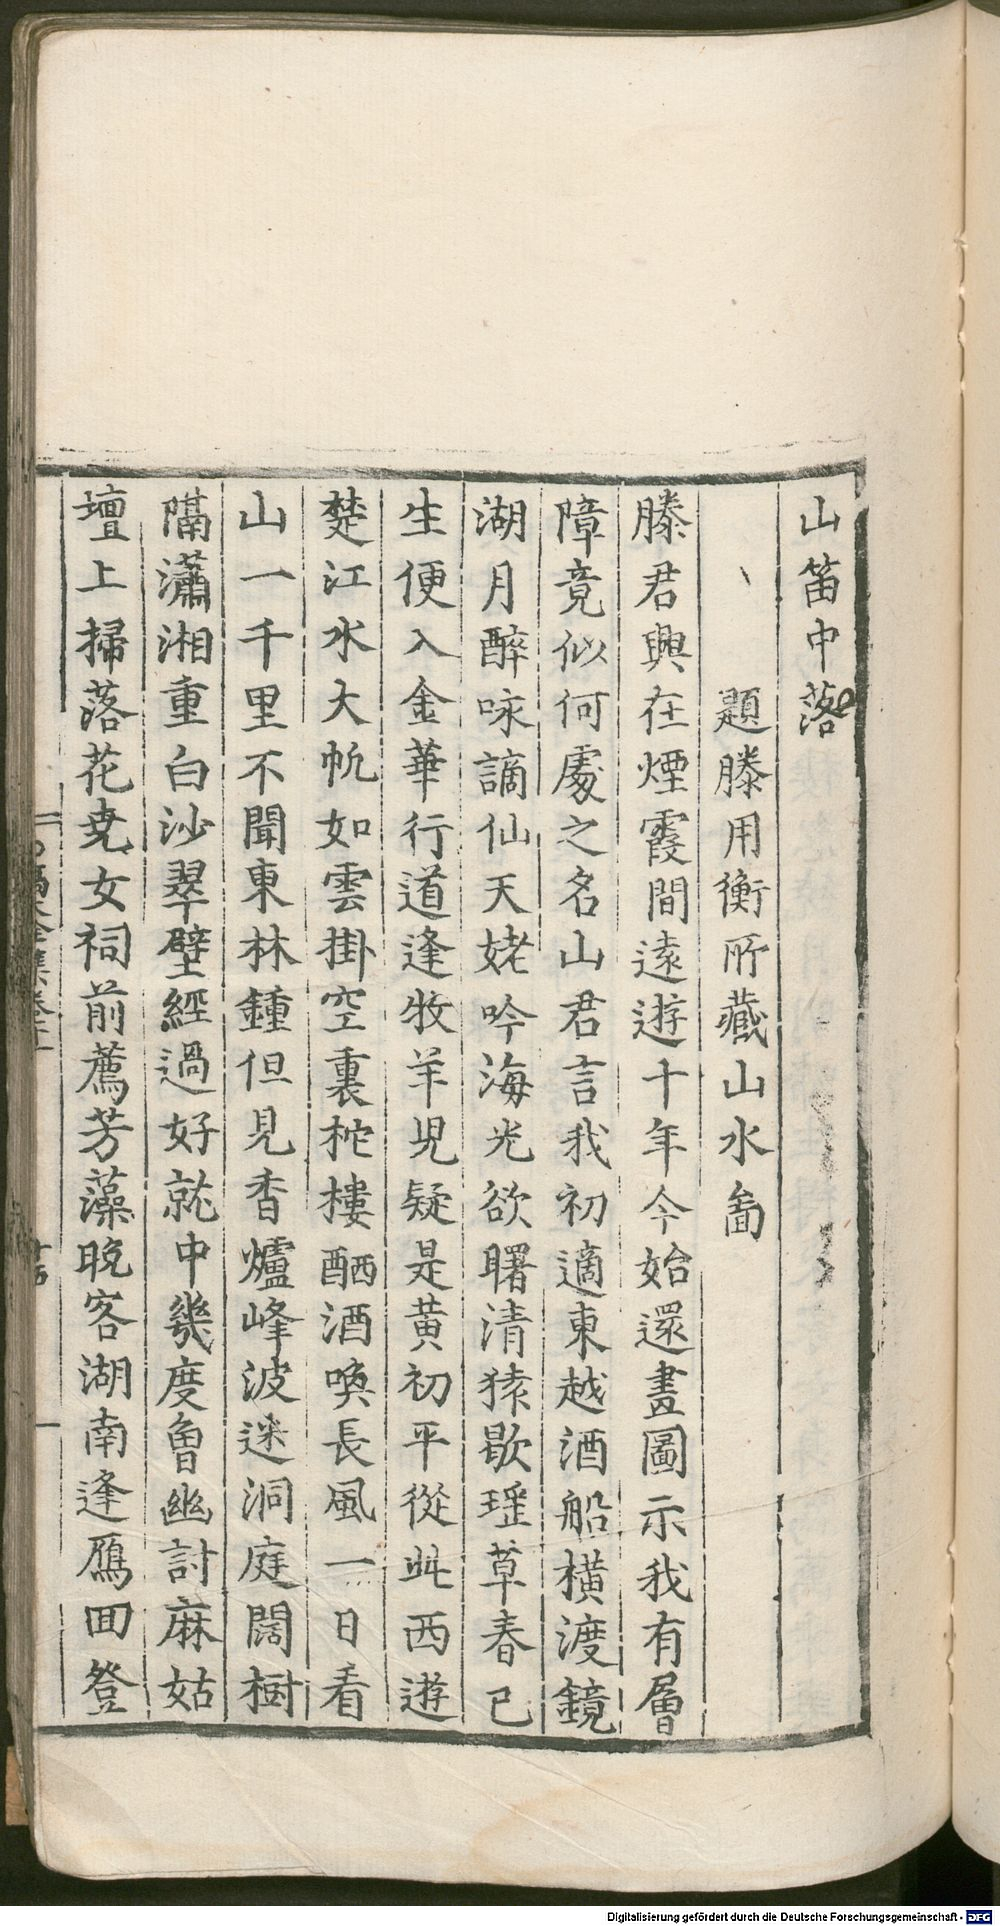 山笛中落
題滕用衡所藏山水啚
滕君興在煙霞間遠遊十年今始還畫圖示我有層
障竟似何處之名山君言我初適東越酒船橫渡鏡
湖月醉咏謫仙天姥吟海光欲曙清猿歇瑶草春已
生便入金華行道逢牧羊児疑是黄初平從此西遊
楚江水大帆如雲掛空裏柁樓酾酒喚長風一日看
山一千里不聞東林鍾但見香爐峰波迷洞庭闊樹
隔瀟湘重白沙翠壁經過好就中幾度曾幽討麻姑
壇上掃落花堯女祠前薦芳藻晚客湖南逢鴈回登
Digitalisierung gefördert durch die Deutsche Forschungsgemeinschaft - DFG